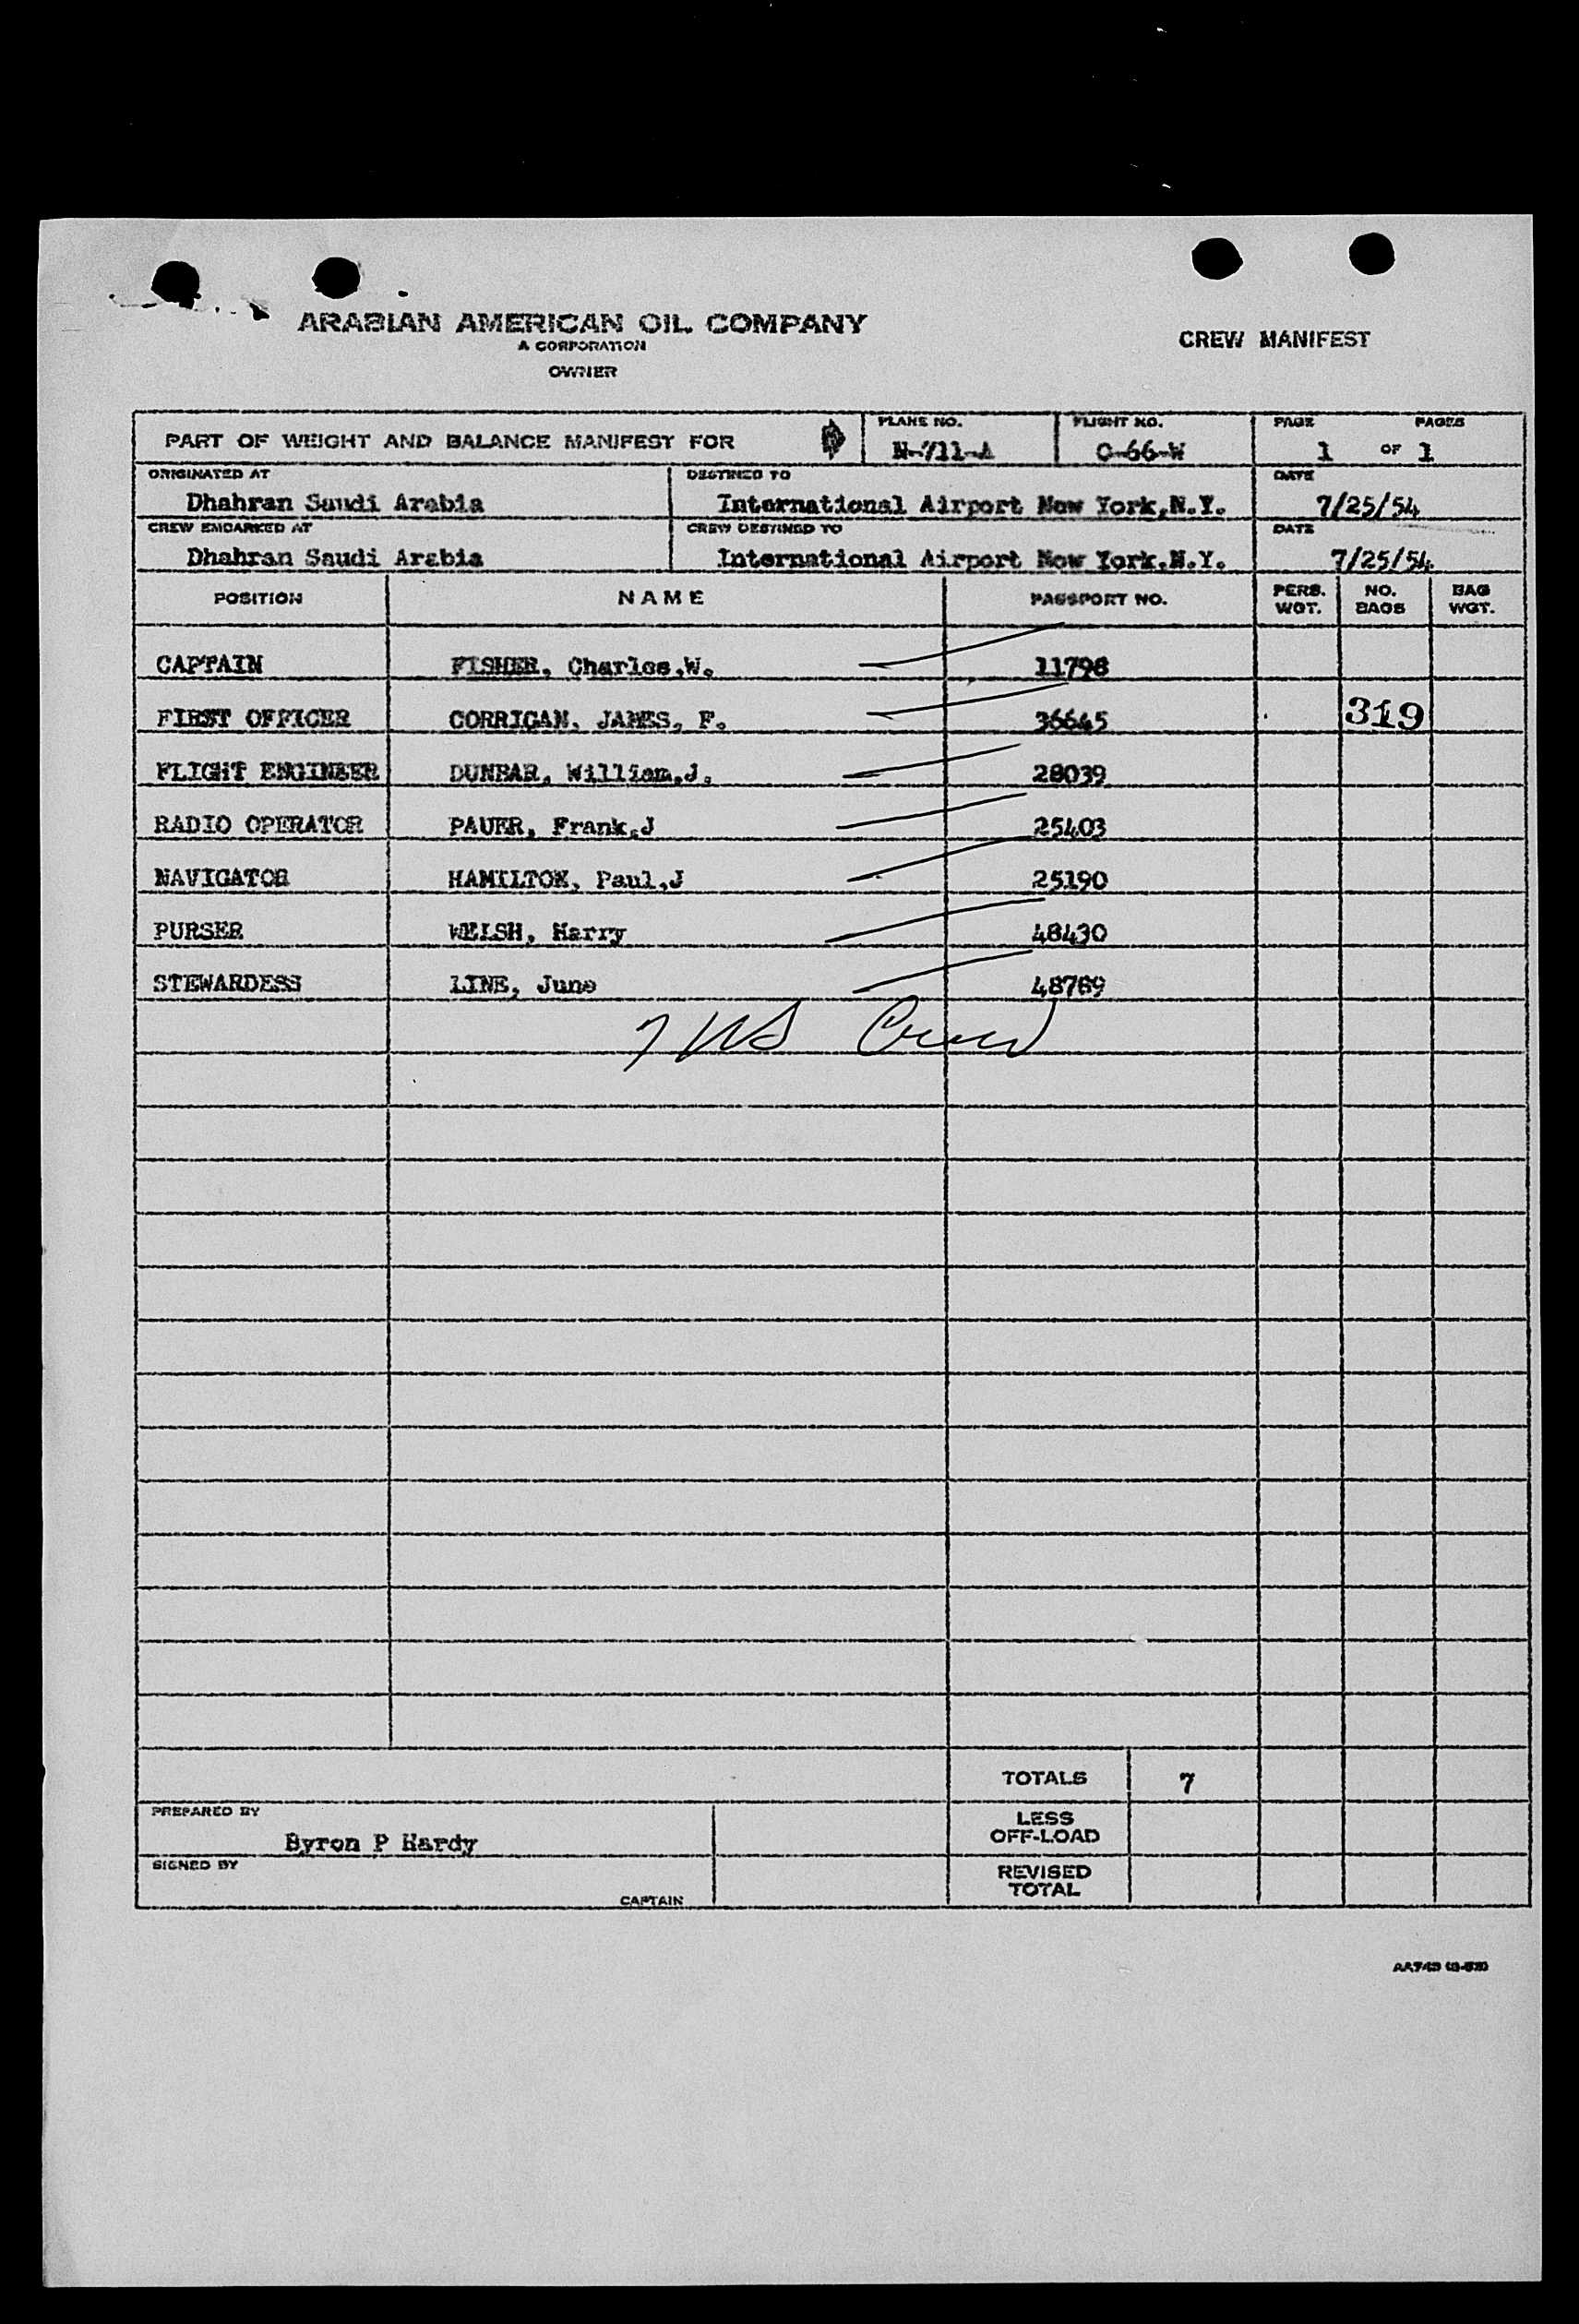 ARABIAN AMERICAN OIL COMPANY
A CORPORATION
OWNER
CREW MANIFEST
PART OF WEIGHT AND BALANCE MANIFEST FOR
PLANE NO. N-711-A
FLIGHT NO. C-66-W
PAGE 1 OF 1 PAGES
ORIGINATED AT Dhahran Saudi Arabia
DESTINED TO International Airport New York,N.Y.
DATE 7/25/54
CREW EMBARKED AT Dhahran Saudi Arabia
CREW DESTINED TO International Airport New York,N.Y.
DATE 7/25/54
POSITION NAME PASSPORT NO. PERS. WGT. NO. BAGS BAG WGT.
CAPTAIN FISHER, Charles,W. 11798
FIRST OFFICER CORRIGAN, JAMES, F. 36645 319
FLIGHT ENGINEER DUNBAR, William,J. 28039
RADIO OPERATOR PAUER, Frank,J 25403
NAVIGATOR HAMILTON, Paul,J 25190
PURSER WELSH, Harry 48430
STEWARDESS LINE, June 48789
7 US Crew
TOTALS 7
PREPARED BY Byron P Hardy
LESS OFF-LOAD
SIGNED BY
CAPTAIN
REVISED TOTAL